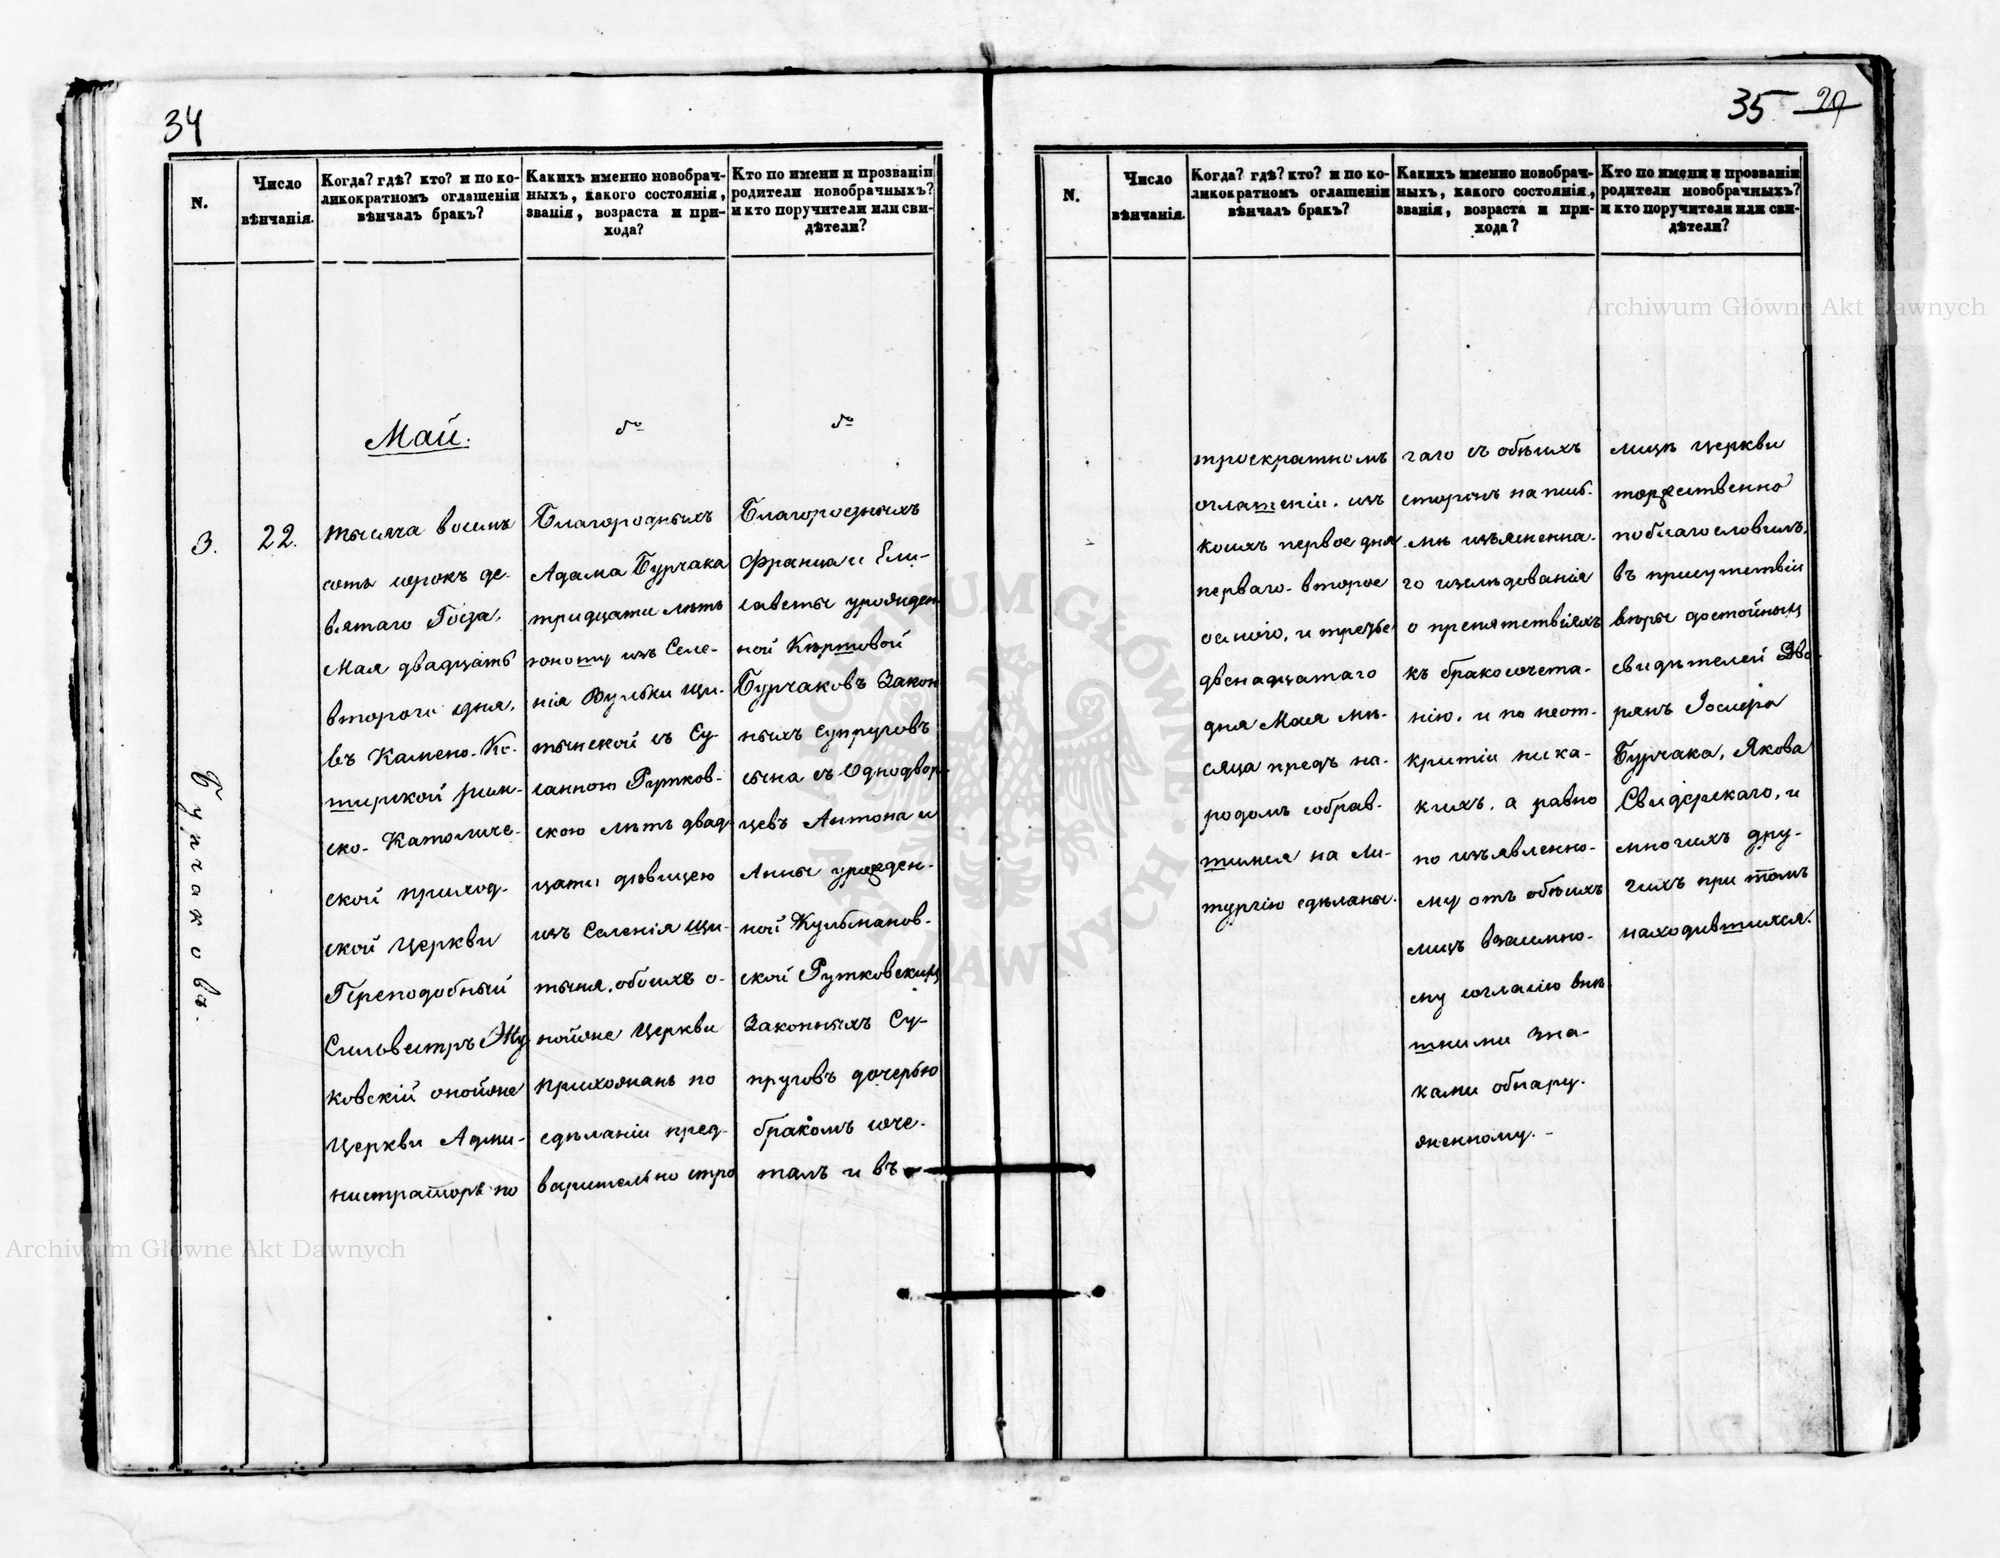 34
N.
Число
вѣнчанія.
Когда? гдѣ? кто? и по ко-
ликократномъ оглашеніи
вѣнчалъ бракъ?
Какихъ именно новобрач-
ныхъ, какого состоянія,
званія, возраста и при-
хода?
Кто по имени и прозванію
родители новобрачныхъ?
и кто поручители или сви-
дѣтели?
Май.
3.
22.
Бурчаковъ.
тысяча восемъ
сотъ сорокъ де-
вятаго Года,
Мая двадцать
втораго дня,
въ Камено-Ко-
ширской рим-
ско-Католиче-
ской приход-
ской Церкви
Преподобный
Сильвестръ Жу
ковскій оной же
Церкви Адми-
нистраторъ по
Благородныхъ
Адама Бурчака
тридцати лѣтъ
юношу изъ Селе-
нія Вульки Щи-
тынской съ Су
санною Рутков-
скою лѣтъ двад-
цати дѣвицею
изъ Селенія Щи-
тыня, обоихъ о-
нойже Церкви
прихожанъ по
сдѣланіи пред-
варительно стро
Благородныхъ
Франца и Ели-
саветы урожден
ной
Бурчаковъ Закон
ныхъ Супруговъ
сына съ Однодвор-
цевъ Антона и
Анны урожден-
ной Кульбанов-
ской Рутковских
Законныхъ Су-
пруговъ дочерью
бракомъ соче-
талъ и въ
35
29
N.
Число
вѣнчанія.
Когда? гдѣ? кто? и по ко-
ликократномъ оглашеніи
вѣнчалъ бракъ?
Какихъ именно новобрач-
ныхъ, какого состоянія,
званія, возраста и при-
хода?
Кто по имени и прозванію
родители новобрачныхъ?
и кто поручители или сви-
дѣтели?
троекратномъ
оглашеніи, изъ
коихъ первое дня
перваго, второе
осмого, и третье
двенадцатаго
дня Мая мѣ-
сяца предъ на-
родомъ собрав-
шимся на Ли-
тургію сдѣланы.
гаго съ обѣихъ
сторонъ на пись-
мѣ изъясненна-
го изслѣдованія
о препятствіяхъ
къ бракосочета-
нію, и по неот-
критіи ника-
кихъ, а равно
по изъявленно-
му отъ обѣихъ
лицъ взаимно-
му согласію внѣ
шними зна-
ками обнару-
женному.-
лицѣ Церкви
торжественно
поблагословилъ,
въ присутствіи
вѣры достойныхъ
свидѣтелей Дво-
рянъ Іосифа
Бурчака, Якова
Свидерскаго, и
многихъ дру-
гихъ при томъ
находившихся.
Archiwum Główne Akt Dawnych
Archiwum Główne Akt Dawnych
ARCHIWUM GŁÓWNE AKT DAWNYCH